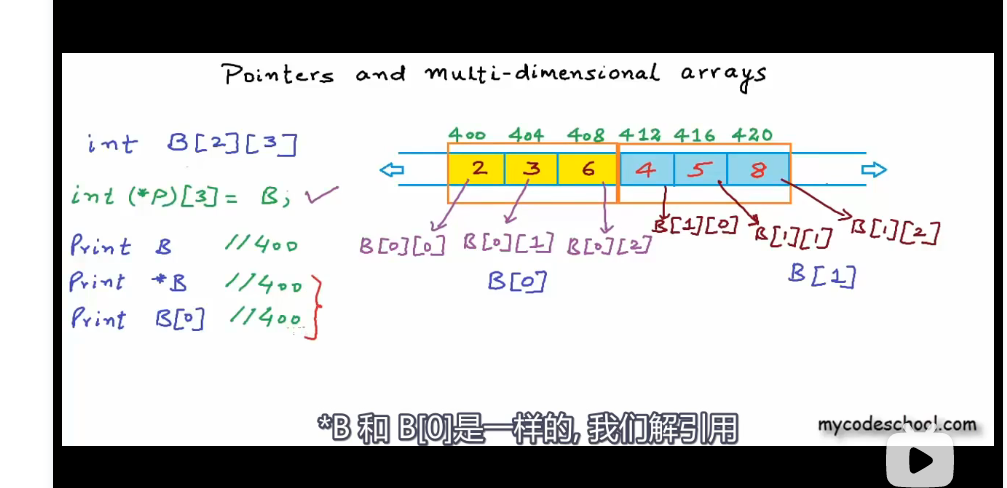 Pointers and multi-dimensional arrays
int B[2][3]
int (*P)[3] = B; ✓
Print B //400
Print *B //400
Print B[0] //400
400 404 408 412 416 420
2 3 6 4 5 8
B[0][0] B[0][1] B[0][2] B[1][0] B[1][1] B[1][2]
B[0] B[1]
*B 和 B[0]是一样的, 我们解引用
mycodeschool.com